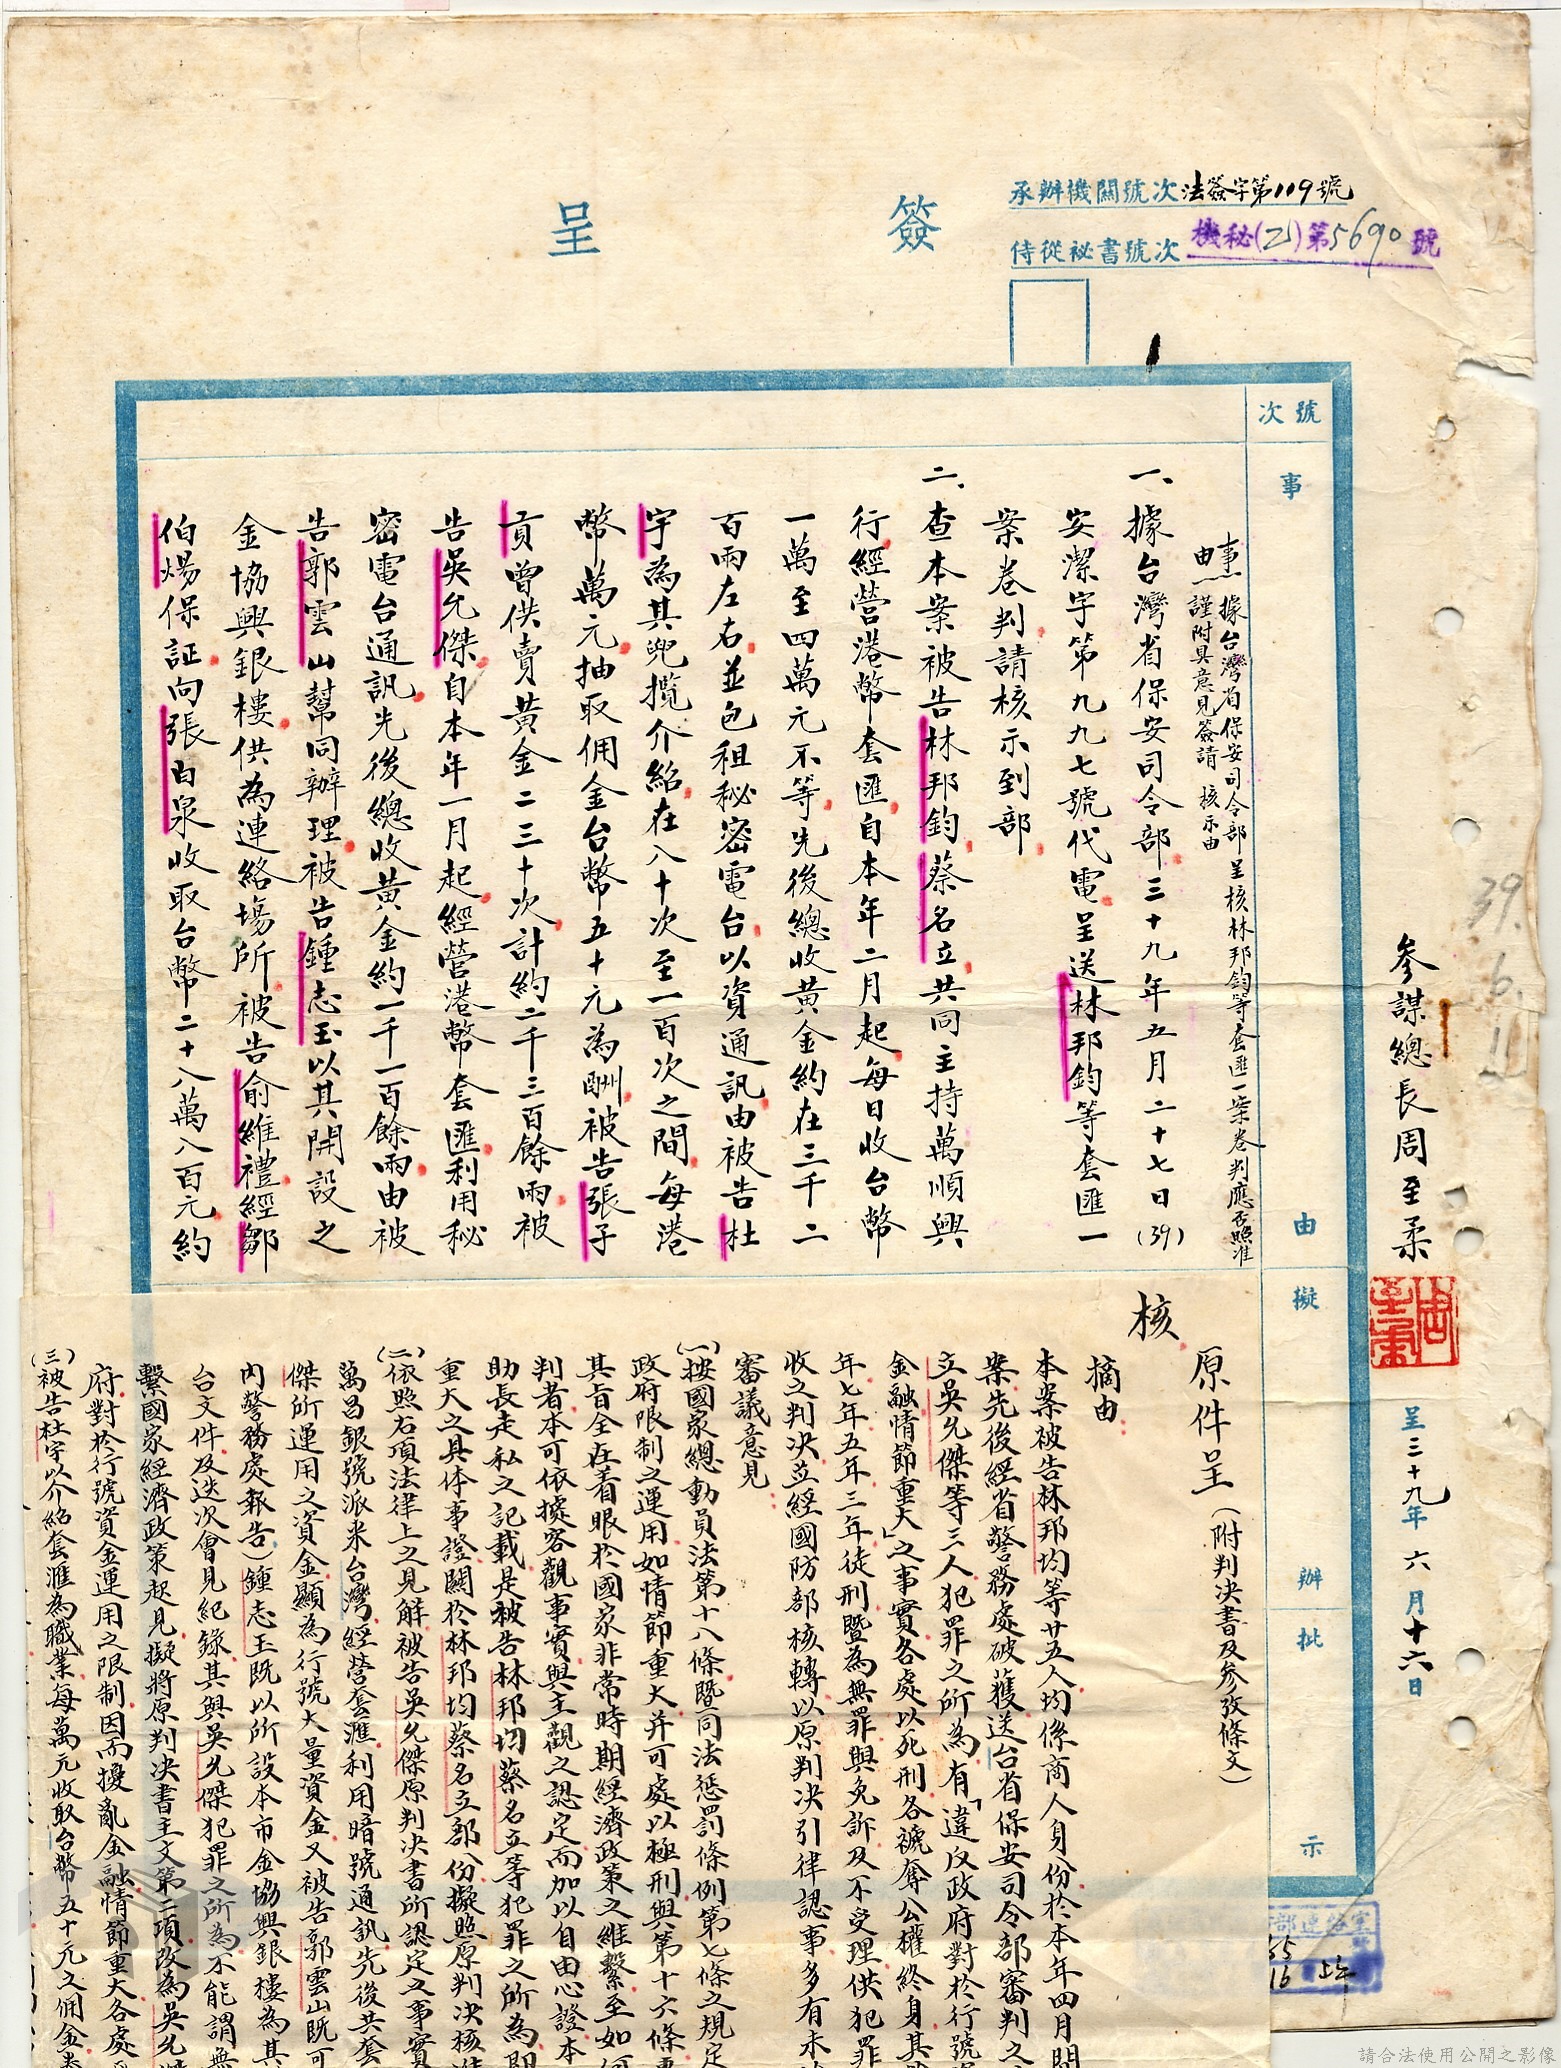 簽呈
承辦機關號次法簽字第119號
侍從祕書號次機秘(乙)第5690號
號次
事由
擬辦
批示
參謀總長周至柔
周至柔
呈三十九年六月十六日
39.6.
事由：據台灣省保安司令部呈核林邦鈞等套匯一案卷判應否照准
謹附具意見簽請 核示由
一、據台灣省保安司令部三十九年五月二十七日(39)
安潔字第九九七號代電呈送林邦鈞等套匯一
案卷判請核示到部
二、查本案被告林邦鈞蔡名立共同主持萬順興
行經營港幣套匯自本年二月起每日收台幣
一萬至四萬元不等先後總收黃金約在三千二
百兩左右並包租秘密電台以資通訊由被告杜
宇為其兜攬介紹在八十次至一百次之間每港
幣萬元抽取佣金台幣五十元為酬被告張子
貢曾供賣黃金二三十次計約二千三百餘兩被
告吳允傑自本年一月起經營港幣套匯利用秘
密電台通訊先後總收黃金約一千一百餘兩由被
告郭雲山幫同辦理被告鍾志玉以其開設之
金協興銀樓供為連絡場所被告俞維禮經鄒
伯煬保証向張白泉收取台幣二十八萬八百元約
核
原件呈(附判決書及參攷條文)
摘由
本案被告林邦均等廿五人均係商人身份於本年四月間
案先後經省警務處破獲送台省保安司令部審判之
立吳允傑等三人犯罪之所為有「違反政府對於行號
金融情節重大」之事實各處以死刑各褫奪公權終身其
年七年五年三年徒刑暨為無罪與免訴及不受理供犯罪
收之判決並經國防部核轉以原判決引律認事多有未
審議意見
(一)按國家總動員法第十八條暨同法懲罰條例第七條之規定
政府限制之運用如情節重大并可處以極刑與第十六條
其旨全在着眼於國家非常時期經濟政策之維繫至如何
判者本可依據客觀事實與主觀之認定而加以自由心證本
助長走私之記載是被告林邦均蔡名立等犯罪之所為即
重大之具体事證關於林邦均蔡名立部份擬照原判決核准
(二)依照右項法律上之見解被告吳允傑原判決書所認定之事實
萬昌銀號派來台灣經營套滙利用暗號通訊先後共套
傑所運用之資金顯為行號大量資金又被告郭雲山既可
內警務處報告)鍾志玉既以所設本市金協興銀樓為其
台文件及迭次會見紀錄其與吳允傑犯罪之所為不能謂無
繫國家經濟政策起見擬將原判決書主文第二項改為吳允
府對於行號資金運用之限制因而擾亂金融情節重大各處
(三)被告杜宇以介紹套滙為職業每萬元收取台幣五十元之佣金
上午
請合法使用公開之影像